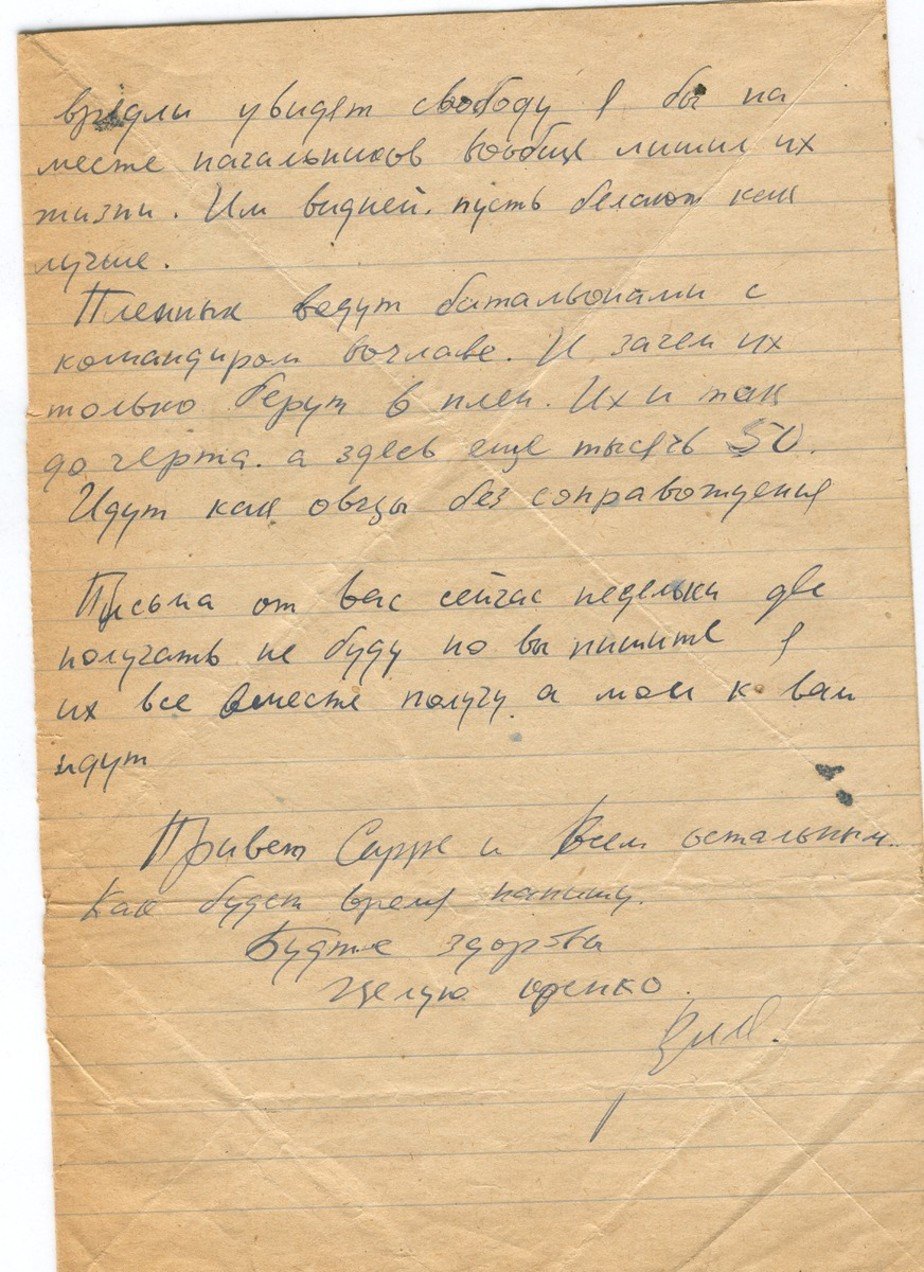 врядли увидят свободу я бы на
месте начальников вообще лишил их
жизни. Им видней. пусть делают как
лучше.
Пленных ведут батальонами с
командиром вочлаве. И зачем их
только берут в плен. Их и так
до черта. а здесь еще тысячь 50.
Идут как овцы без соправождения
Письма от вас сейчас недельки две
получать не буду но вы пишите я
их все вместе получу а мои к вам
идут
Привет Сарре и Всем остальным.
Как будет время напишу.
Будте здоровы
Целую крепко.